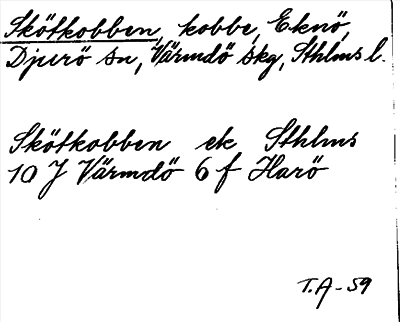 Skötkobben, kobbe, Eknö,
Djurö sn, Värmdö skg, Sthlms l.
Skötkobben ek Sthlms
10 J Värmdö 6 f Harö
T.A-59